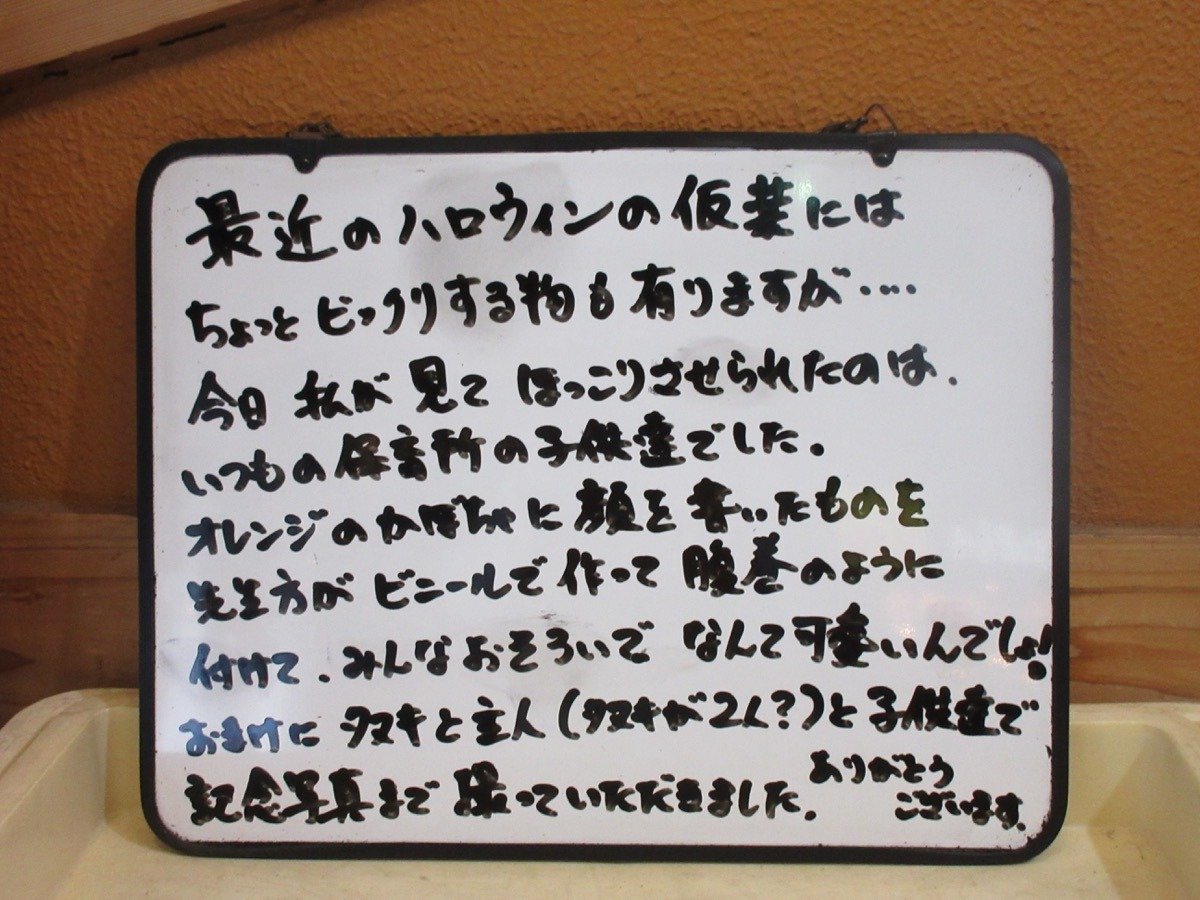 最近のハロウィンの仮装には
ちょっとビックリする物も有りますが････
今日私が見てほっこりさせられたのは、
いつもの保育所の子供達でした。
オレンジのかぼちゃに顔を書いたものを
先生方がビニールで作って腹巻のように
付けて、みんなおそろいでなんて可愛いんでしょ!
おまけにタヌキと主人(タヌキが2人?)と子供達で
記念写真まで撮っていただきました。ありがとう
ございます。